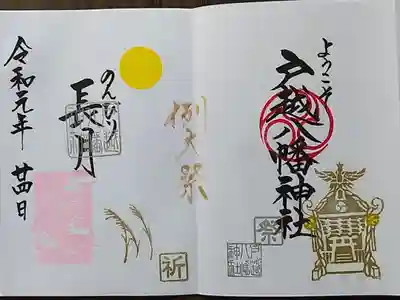 ようこそ
戸越八幡神社
祭
例大祭
祈
のんびり
長月
令和元年 廿四日